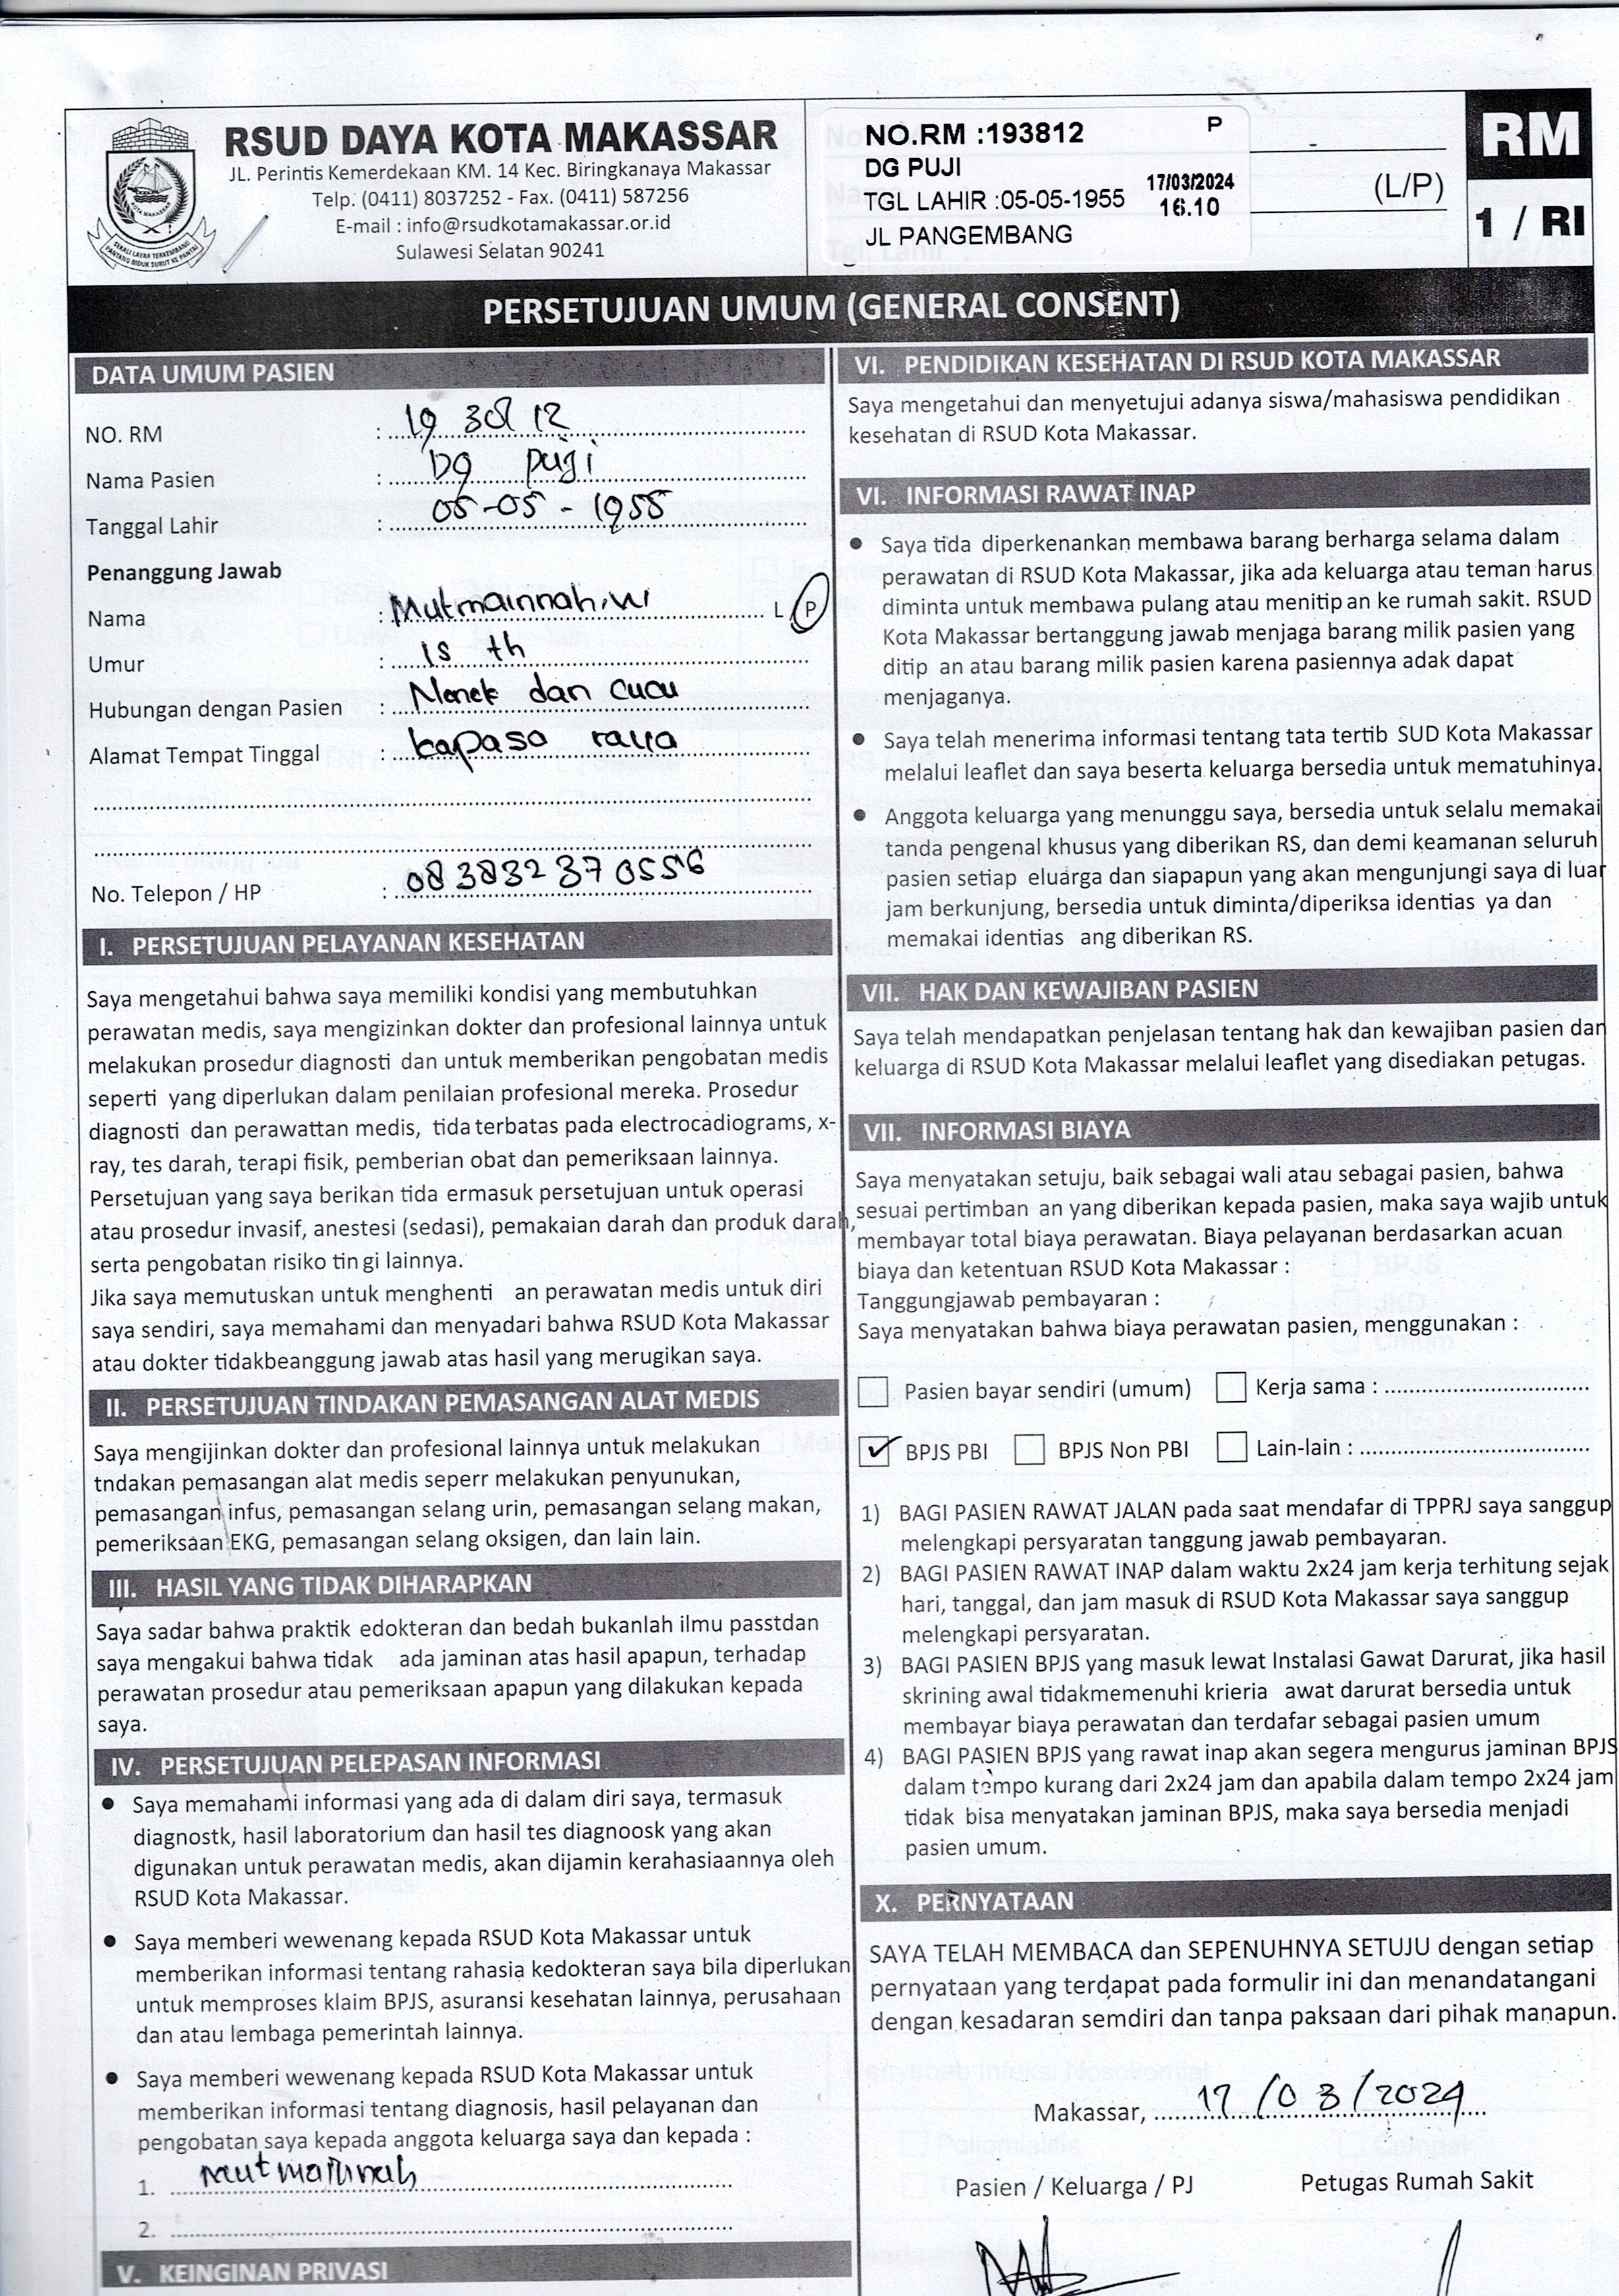 RSUD DAYA KOTA MAKASSAR
JL. Perintis Kemerdekaan KM. 14 Kec. Biringkanaya Makassar
Telp. (0411) 8037252 - Fax. (0411) 587256
E-mail : info@rsudkotamakassar.or.id
Sulawesi Selatan 90241
NO.RM :193812 P
DG PUJI
TGL LAHIR :05-05-1955 17/03/2024
16.10
JL PANGEMBANG
(L/P)
RM
1 / RI
PERSETUJUAN UMUM (GENERAL CONSENT)
DATA UMUM PASIEN
NO. RM : 19 38 12
Nama Pasien : Dg puji
Tanggal Lahir : 05-05-1955
Penanggung Jawab
Nama : Mutmainnah.w L/P
Umur : 15 th
Hubungan dengan Pasien : Nenek dan cucu
Alamat Tempat Tinggal : kapasa raya
No. Telepon / HP : 083832370556
I. PERSETUJUAN PELAYANAN KESEHATAN
Saya mengetahui bahwa saya memiliki kondisi yang membutuhkan
perawatan medis, saya mengizinkan dokter dan profesional lainnya untuk
melakukan prosedur diagnosti dan untuk memberikan pengobatan medis
seperti yang diperlukan dalam penilaian profesional mereka. Prosedur
diagnosti dan perawattan medis, tida terbatas pada electrocadiograms, x-
ray, tes darah, terapi fisik, pemberian obat dan pemeriksaan lainnya.
Persetujuan yang saya berikan tida ermasuk persetujuan untuk operasi
atau prosedur invasif, anestesi (sedasi), pemakaian darah dan produk darah,
serta pengobatan risiko tin gi lainnya.
Jika saya memutuskan untuk menghenti an perawatan medis untuk diri
saya sendiri, saya memahami dan menyadari bahwa RSUD Kota Makassar
atau dokter tidakbeanggung jawab atas hasil yang merugikan saya.
II. PERSETUJUAN TINDAKAN PEMASANGAN ALAT MEDIS
Saya mengijinkan dokter dan profesional lainnya untuk melakukan
tndakan pemasangan alat medis seperr melakukan penyunukan,
pemasangan infus, pemasangan selang urin, pemasangan selang makan,
pemeriksaan EKG, pemasangan selang oksigen, dan lain lain.
III. HASIL YANG TIDAK DIHARAPKAN
Saya sadar bahwa praktik edokteran dan bedah bukanlah ilmu passtdan
saya mengakui bahwa tidak ada jaminan atas hasil apapun, terhadap
perawatan prosedur atau pemeriksaan apapun yang dilakukan kepada
saya.
IV. PERSETUJUAN PELEPASAN INFORMASI
● Saya memahami informasi yang ada di dalam diri saya, termasuk
diagnostk, hasil laboratorium dan hasil tes diagnoosk yang akan
digunakan untuk perawatan medis, akan dijamin kerahasiaannya oleh
RSUD Kota Makassar.
● Saya memberi wewenang kepada RSUD Kota Makassar untuk
memberikan informasi tentang rahasia kedokteran saya bila diperlukan
untuk memproses klaim BPJS, asuransi kesehatan lainnya, perusahaan
dan atau lembaga pemerintah lainnya.
● Saya memberi wewenang kepada RSUD Kota Makassar untuk
memberikan informasi tentang diagnosis, hasil pelayanan dan
pengobatan saya kepada anggota keluarga saya dan kepada :
1. Mutmainnah
2.
V. KEINGINAN PRIVASI
VI. PENDIDIKAN KESEHATAN DI RSUD KOTA MAKASSAR
Saya mengetahui dan menyetujui adanya siswa/mahasiswa pendidikan
kesehatan di RSUD Kota Makassar.
VI. INFORMASI RAWAT INAP
● Saya tida diperkenankan membawa barang berharga selama dalam
perawatan di RSUD Kota Makassar, jika ada keluarga atau teman harus
diminta untuk membawa pulang atau menitip an ke rumah sakit. RSUD
Kota Makassar bertanggung jawab menjaga barang milik pasien yang
ditip an atau barang milik pasien karena pasiennya adak dapat
menjaganya.
● Saya telah menerima informasi tentang tata tertib SUD Kota Makassar
melalui leaflet dan saya beserta keluarga bersedia untuk mematuhinya.
● Anggota keluarga yang menunggu saya, bersedia untuk selalu memakai
tanda pengenal khusus yang diberikan RS, dan demi keamanan seluruh
pasien setiap eluarga dan siapapun yang akan mengunjungi saya di luar
jam berkunjung, bersedia untuk diminta/diperiksa identias ya dan
memakai identias ang diberikan RS.
VII. HAK DAN KEWAJIBAN PASIEN
Saya telah mendapatkan penjelasan tentang hak dan kewajiban pasien dan
keluarga di RSUD Kota Makassar melalui leaflet yang disediakan petugas.
VII. INFORMASI BIAYA
Saya menyatakan setuju, baik sebagai wali atau sebagai pasien, bahwa
sesuai pertimban an yang diberikan kepada pasien, maka saya wajib untuk
membayar total biaya perawatan. Biaya pelayanan berdasarkan acuan
biaya dan ketentuan RSUD Kota Makassar :
Tanggungjawab pembayaran :
Saya menyatakan bahwa biaya perawatan pasien, menggunakan :
☐ Pasien bayar sendiri (umum) ☐ Kerja sama :
☑ BPJS PBI ☐ BPJS Non PBI ☐ Lain-lain :
1) BAGI PASIEN RAWAT JALAN pada saat mendafar di TPPRJ saya sanggup
melengkapi persyaratan tanggung jawab pembayaran.
2) BAGI PASIEN RAWAT INAP dalam waktu 2x24 jam kerja terhitung sejak
hari, tanggal, dan jam masuk di RSUD Kota Makassar saya sanggup
melengkapi persyaratan.
3) BAGI PASIEN BPJS yang masuk lewat Instalasi Gawat Darurat, jika hasil
skrining awal tidakmemenuhi krieria awat darurat bersedia untuk
membayar biaya perawatan dan terdafar sebagai pasien umum
4) BAGI PASIEN BPJS yang rawat inap akan segera mengurus jaminan BPJS
dalam tempo kurang dari 2x24 jam dan apabila dalam tempo 2x24 jam
tidak bisa menyatakan jaminan BPJS, maka saya bersedia menjadi
pasien umum.
X. PERNYATAAN
SAYA TELAH MEMBACA dan SEPENUHNYA SETUJU dengan setiap
pernyataan yang terdapat pada formulir ini dan menandatangani
dengan kesadaran semdiri dan tanpa paksaan dari pihak manapun.
Makassar, 17/03/2024
Pasien / Keluarga / PJ Petugas Rumah Sakit